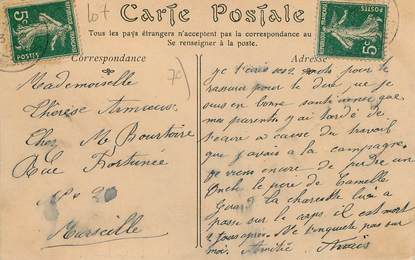 lot
Carte Postale
Tous les pays étrangers n'acceptent pas la correspondance au
Se renseigner à la poste.
Correspondance
Adresse
5c
5c
7c
Mademoiselle
Thérèse
Chez M. Bourtoire
Rue Fortunée
N° 20
Marseille
je t'écris ses mots pour te
rassurer pour te dire que je
suis en bonne santé ainsi que
mes parents j'ai tardé de
a cause du travail
que j'avais a la campagne.
je viens encore de perdre un
oncle le père de Camelle
la charette lui a
passé sur le corps il est mort
2 jours apres. Ne t'inquiete pas sur
moi. Amitié